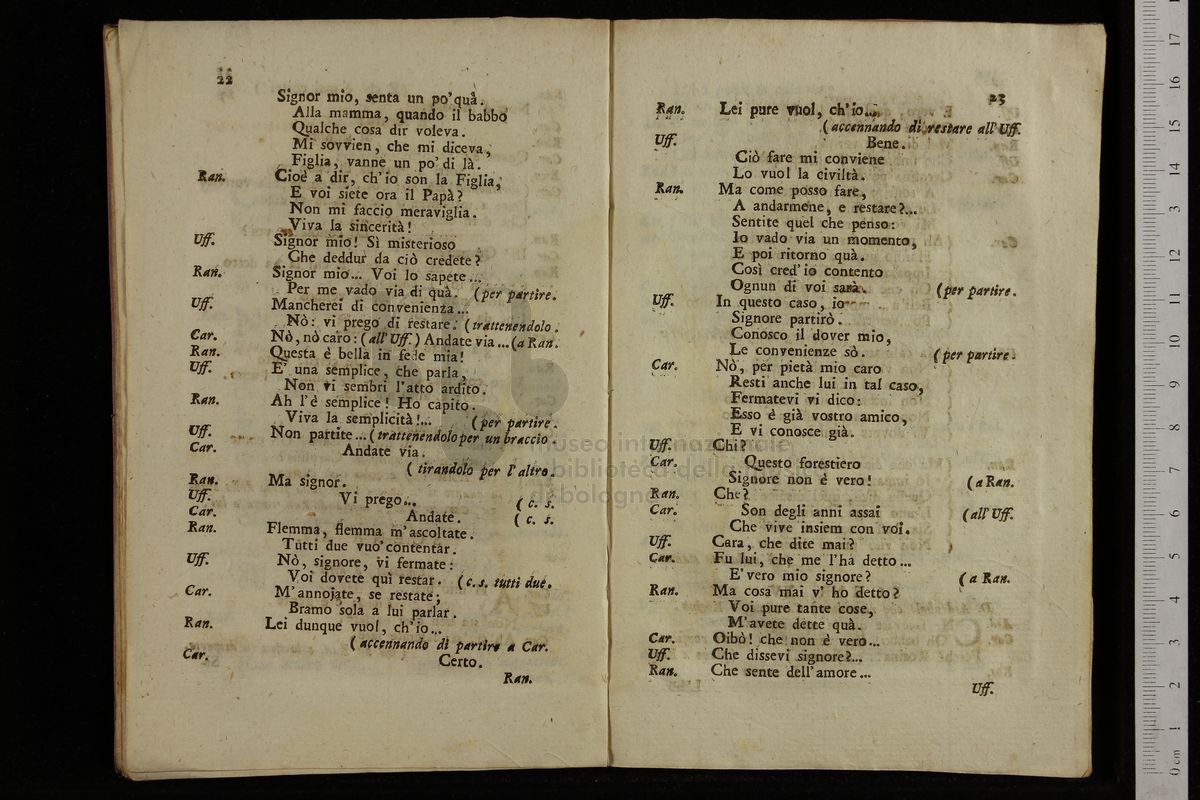 22
Signor mio, senta un po' quà.
Alla mamma, quando il babbo
Qualche cosa dir voleva.
Mi sovvien, che mi diceva,
Figlia, vanne un po' di là.
Ran. Cioè a dir, ch' io son la Figlia,
E voi siete ora il Papà?
Non mi faccio meraviglia.
Viva la sincerità!
Uff. Signor mio! Sì misterioso
Che deddur da ciò credete?
Ran. Signor mio... Voi lo sapete...
Per me vado via di quà. (per partire.
Uff. Mancherei di convenienza...
Nò: vi prego di restare. (trattenendolo.
Car. Nò, nò caro: (all' Uff.) Andate via... (a Ran.
Ran. Questa è bella in fede mia!
Uff. E' una semplice, che parla,
Non vi sembri l'atto ardito.
Ran. Ah l'è semplice! Ho capito.
Viva la semplicità!... (per partire.
Uff. Non partite... (trattenendolo per un braccio.
Car. Andate via.
(tirandolo per l'altro.
Ran. Ma signor.
Uff. Vi prego... (c. s.
Car. Andate. (c. s.
Ran. Flemma, flemma m'ascoltate.
Tutti due vuo' contentar.
Uff. Nò, signore, vi fermate:
Voi dovete quì restar. (c. s. tutti due.
Car. M'annojate, se restate;
Bramo sola a lui parlar.
Ran. Lei dunque vuol, ch'io...
(accennando di partire a Car.
Car. Certo.
Ran.
23
Ran. Lei pure vuol, ch'io...
(accennando di restare all' Uff.
Uff. Bene.
Ciò fare mi conviene
Lo vuol la civiltà.
Ran. Ma come posso fare,
A andarmene, e restare?...
Sentite quel che penso:
Io vado via un momento,
E poi ritorno quà.
Così cred' io contento
Ognun di voi sarà. (per partire.
Uff. In questo caso, io
Signore partirò.
Conosco il dover mio,
Le convenienze sò. (per partire.
Car. Nò, per pietà mio caro
Resti anche lui in tal caso,
Fermatevi vi dico:
Esso è già vostro amico,
E vi conosce già.
Uff. Chi?
Car. Questo forestiero
Signore non è vero! (a Ran.
Ran. Che?
Car. Son degli anni assai (all' Uff.
Che vive insiem con voi.
Uff. Cara, che dite mai?
Car. Fu lui, che me l'ha detto...
E' vero mio signore? (a Ran.
Ran. Ma cosa mai v' ho detto?
Voi pure tante cose,
M'avete dette quà.
Car. Oibò! che non è vero...
Uff. Che dissevi signore?...
Ran. Che sente dell'amore...
Uff.
museo internazionale
biblioteca della musica
di bologna
0 cm 1 2 3 4 5 6 7 8 9 10 11 12 13 14 15 16 17